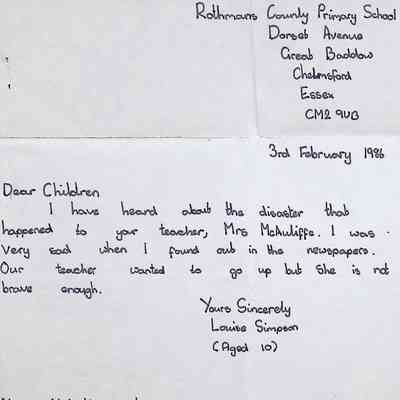 Rothmans County Primary School
Dorset Avenue
Great Baddow
Chelmsford
Essex
CM2 9UB
3rd February 1986
Dear Children
I have heard about the disaster that
happened to your teacher, Mrs McAuliffe. I was
very sad when I found out in the newspapers.
Our teacher wanted to go up but she is not
brave enough.
Yours Sincerely
Louise Simpson
(Aged 10)